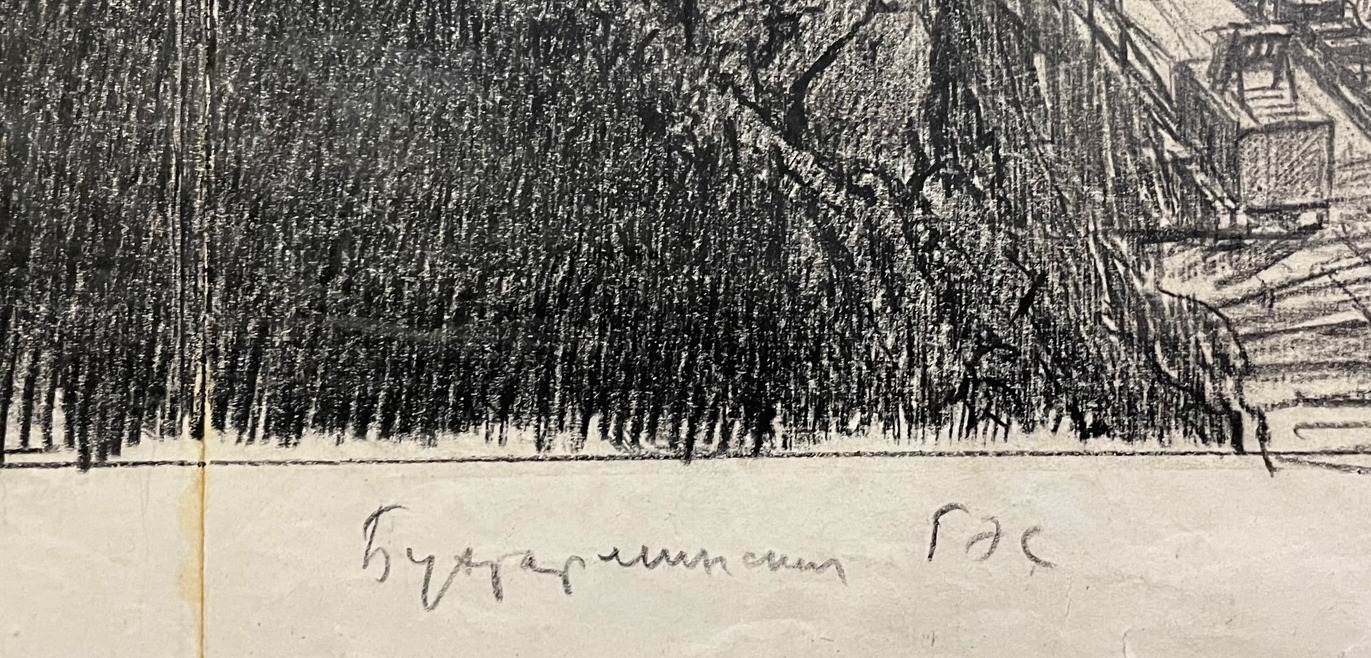 Бухтарминская ГЭС